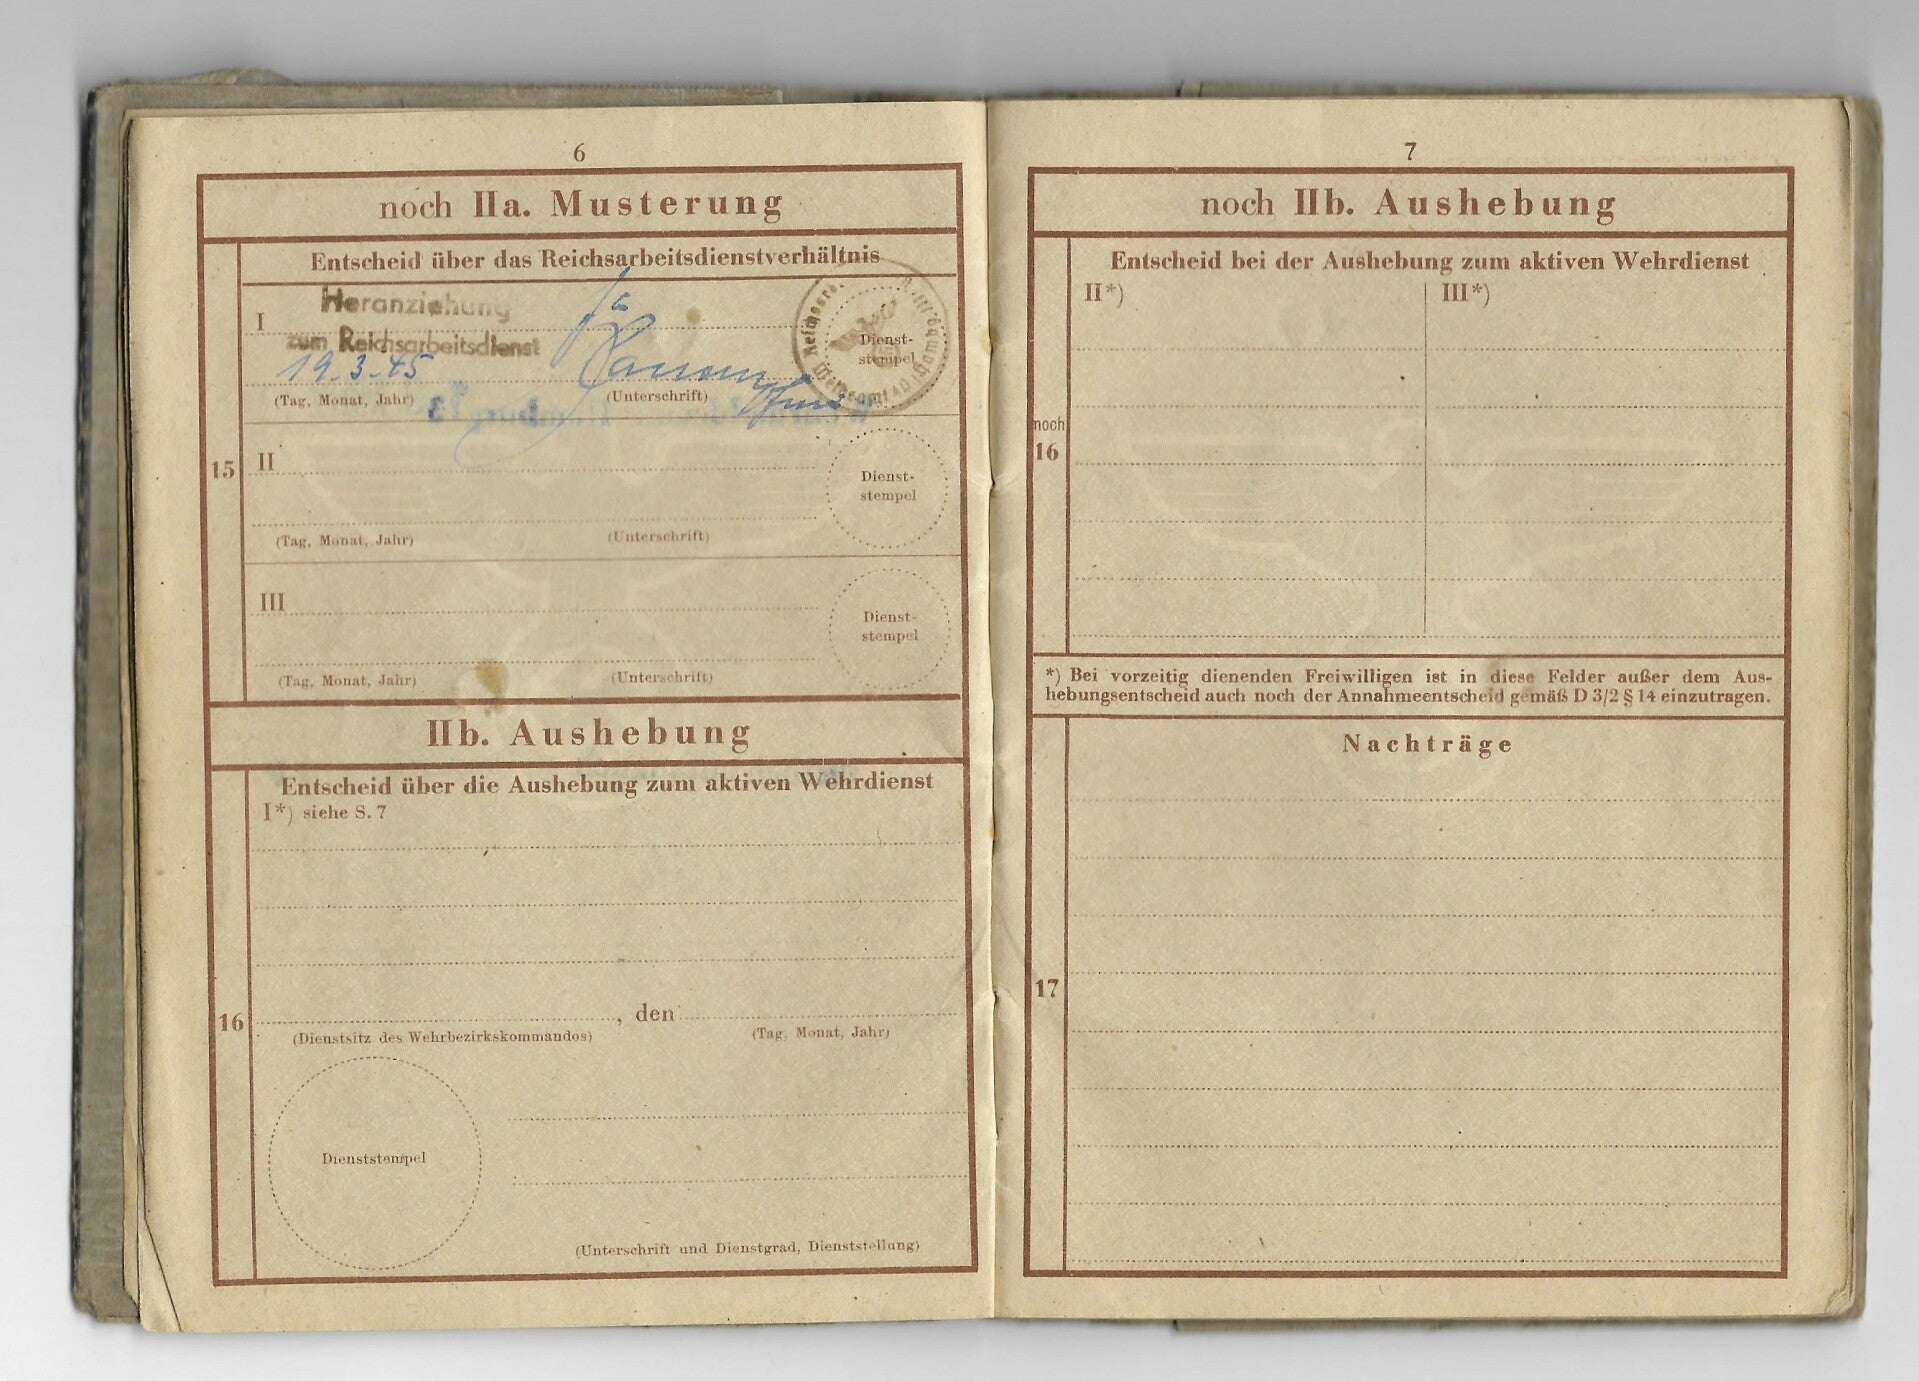 6
noch IIa. Musterung
Entscheid über das Reichsarbeitsdienstverhältnis
I
Heranziehung
zum Reichsarbeitsdienst
19.3.45
(Tag, Monat, Jahr)
(Unterschrift)
Dienst-
stempel
15
II
(Tag, Monat, Jahr)
(Unterschrift)
Dienst-
stempel
III
(Tag, Monat, Jahr)
(Unterschrift)
Dienst-
stempel
IIb. Aushebung
Entscheid über die Aushebung zum aktiven Wehrdienst
I*) siehe S. 7
16
, den
(Dienstsitz des Wehrbezirkskommandos)
(Tag, Monat, Jahr)
Dienststempel
(Unterschrift und Dienstgrad, Dienststellung)
7
noch IIb. Aushebung
Entscheid bei der Aushebung zum aktiven Wehrdienst
II*)
III*)
noch
16
*) Bei vorzeitig dienenden Freiwilligen ist in diese Felder außer dem Aus-
hebungsentscheid auch noch der Annahmeentscheid gemäß D 3/2 § 14 einzutragen.
Nachträge
17